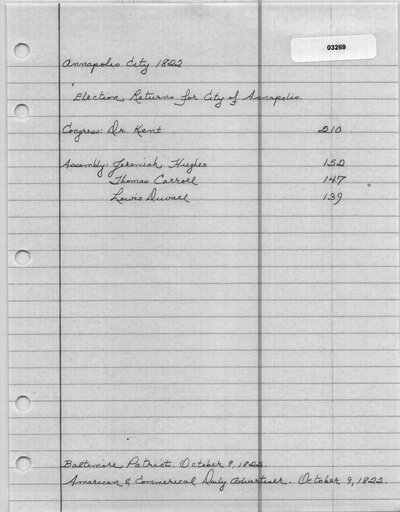 03269
Annapolis City 1822
Election Returns for City of Annapolis.
Congress: Dr. Kent 210
Assembly: Jeremiah Hughes 152
Thomas Carroll 147
Lewis Duvall 139
Baltimore Patriot. October 9, 1822.
American & Commerical Daily Advertiser. October 9, 1822.